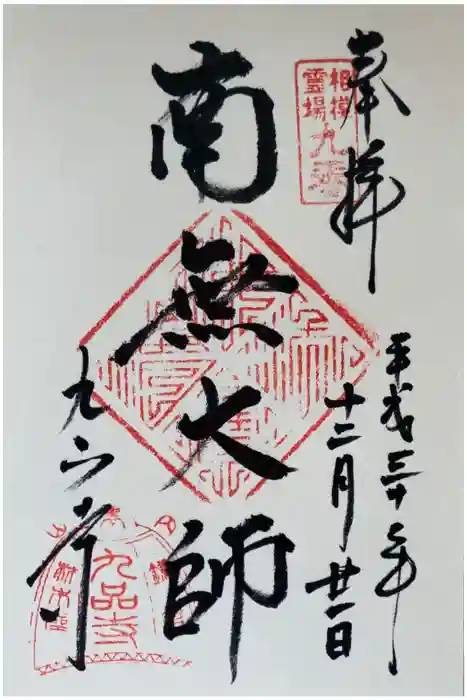 奉拝
相模
霊場
九
平成三十年
十二月廿一日
南無大師
九品寺
九品寺
材木座